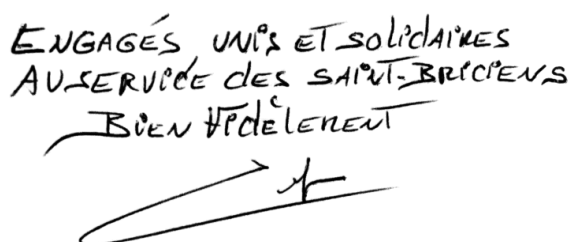 ENGAGÉS UNIS ET SOLIDAIRES
AU SERVICE DES SAINT-BRICIENS
BIEN FIDÈLEMENT